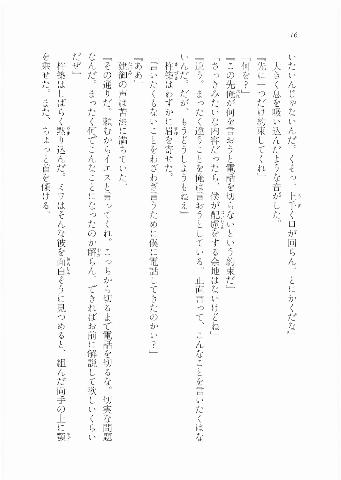 16
いたいんじゃないんだ。くそっ、上手く口が回らん。とにかくだな」
大きく息を吸い込んだような音がした。
『先に一つだけ約束してくれ』
「何を？」
『この先俺が何を言おうと電話を切らないという約束だ』
「さっきみたいな内容だったら、僕が配慮をする余地はないけどね」
『違う。まったく違うことを俺は言おうとしている。正直言って、こんなことを言いたくはな
いんだ。だが、もうどうしようもねえ』
柊築はわずかに眉を寄せた。
「言いたくもないことをわざわざ言うために僕に電話してきたのかい？」
『ああ』
建御の声は苦渋に満ちていた。
『その通りだ。頼むからイエスと言ってくれ。こっちから切るまで電話を切るな。切実な問題
なんだ。まったく何でこんなことになったのか解らん。できればお前に解説して欲しいくらい
だぜ』
柊築はしばらく黙り込んだ。ミワはそんな彼を面白そうに見つめると、組んだ両手の上に顎
を乗せた。また、ちょっと首を傾ける。